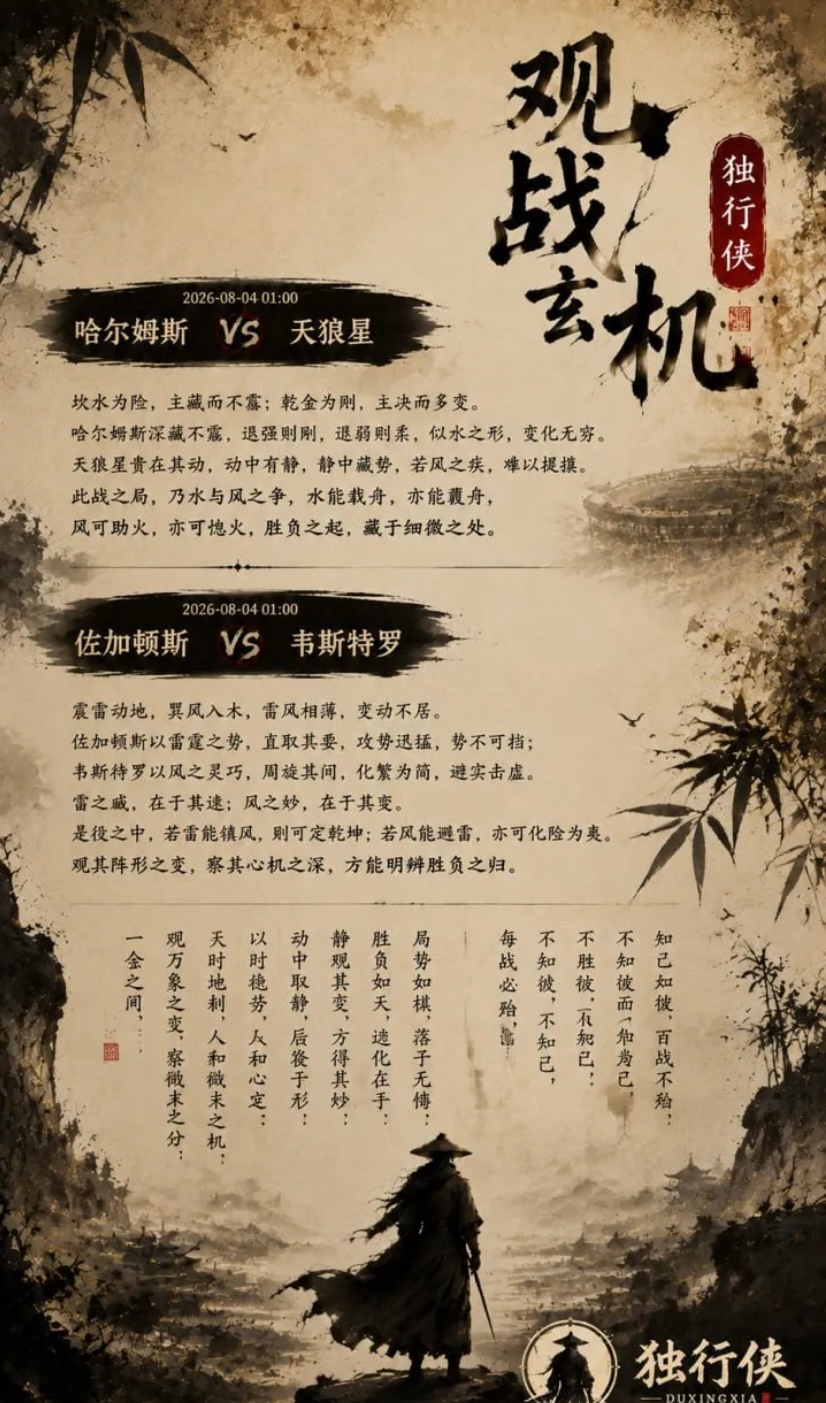 观战玄机
独行侠
2026-08-04 01:00
哈尔姆斯 VS 天狼星
坎水为险，主藏而不露；乾金为刚，主决而多变。
哈尔姆斯深藏不露，退强则刚，退弱则柔，似水之形，变化无穷。
天狼星贵在其动，动中有静，静中藏势，若风之疾，难以捉摸。
此战之局，乃水与风之争，水能载舟，亦能覆舟，
风可助火，亦可熄火，胜负之起，藏于细微之处。
2026-08-04 01:00
佐加顿斯 VS 韦斯特罗
震雷动地，巽风入木，雷风相薄，变动不居。
佐加顿斯以雷霆之势，直取其要，攻势迅猛，势不可挡；
韦斯特罗以风之灵巧，周旋其间，化繁为简，避实击虚。
雷之威，在于其速；风之妙，在于其变。
是役之中，若雷能镇风，则可定乾坤；若风能避雷，亦可化险为夷。
观其阵形之变，察其心机之深，方能明辨胜负之归。
知己如彼，百战不殆；
不知彼而
不胜彼，
不知彼，不知己，
每战必殆，
局势如棋，落子无悔；
胜负如天，造化在手；
静观其变，方得其妙；
动中取静，后发于形；
以时 势，人和心定；
天时地利，人和微末之机；
观万象之变，察微末之分；
一金之间，
独行侠
DUXINGXIA